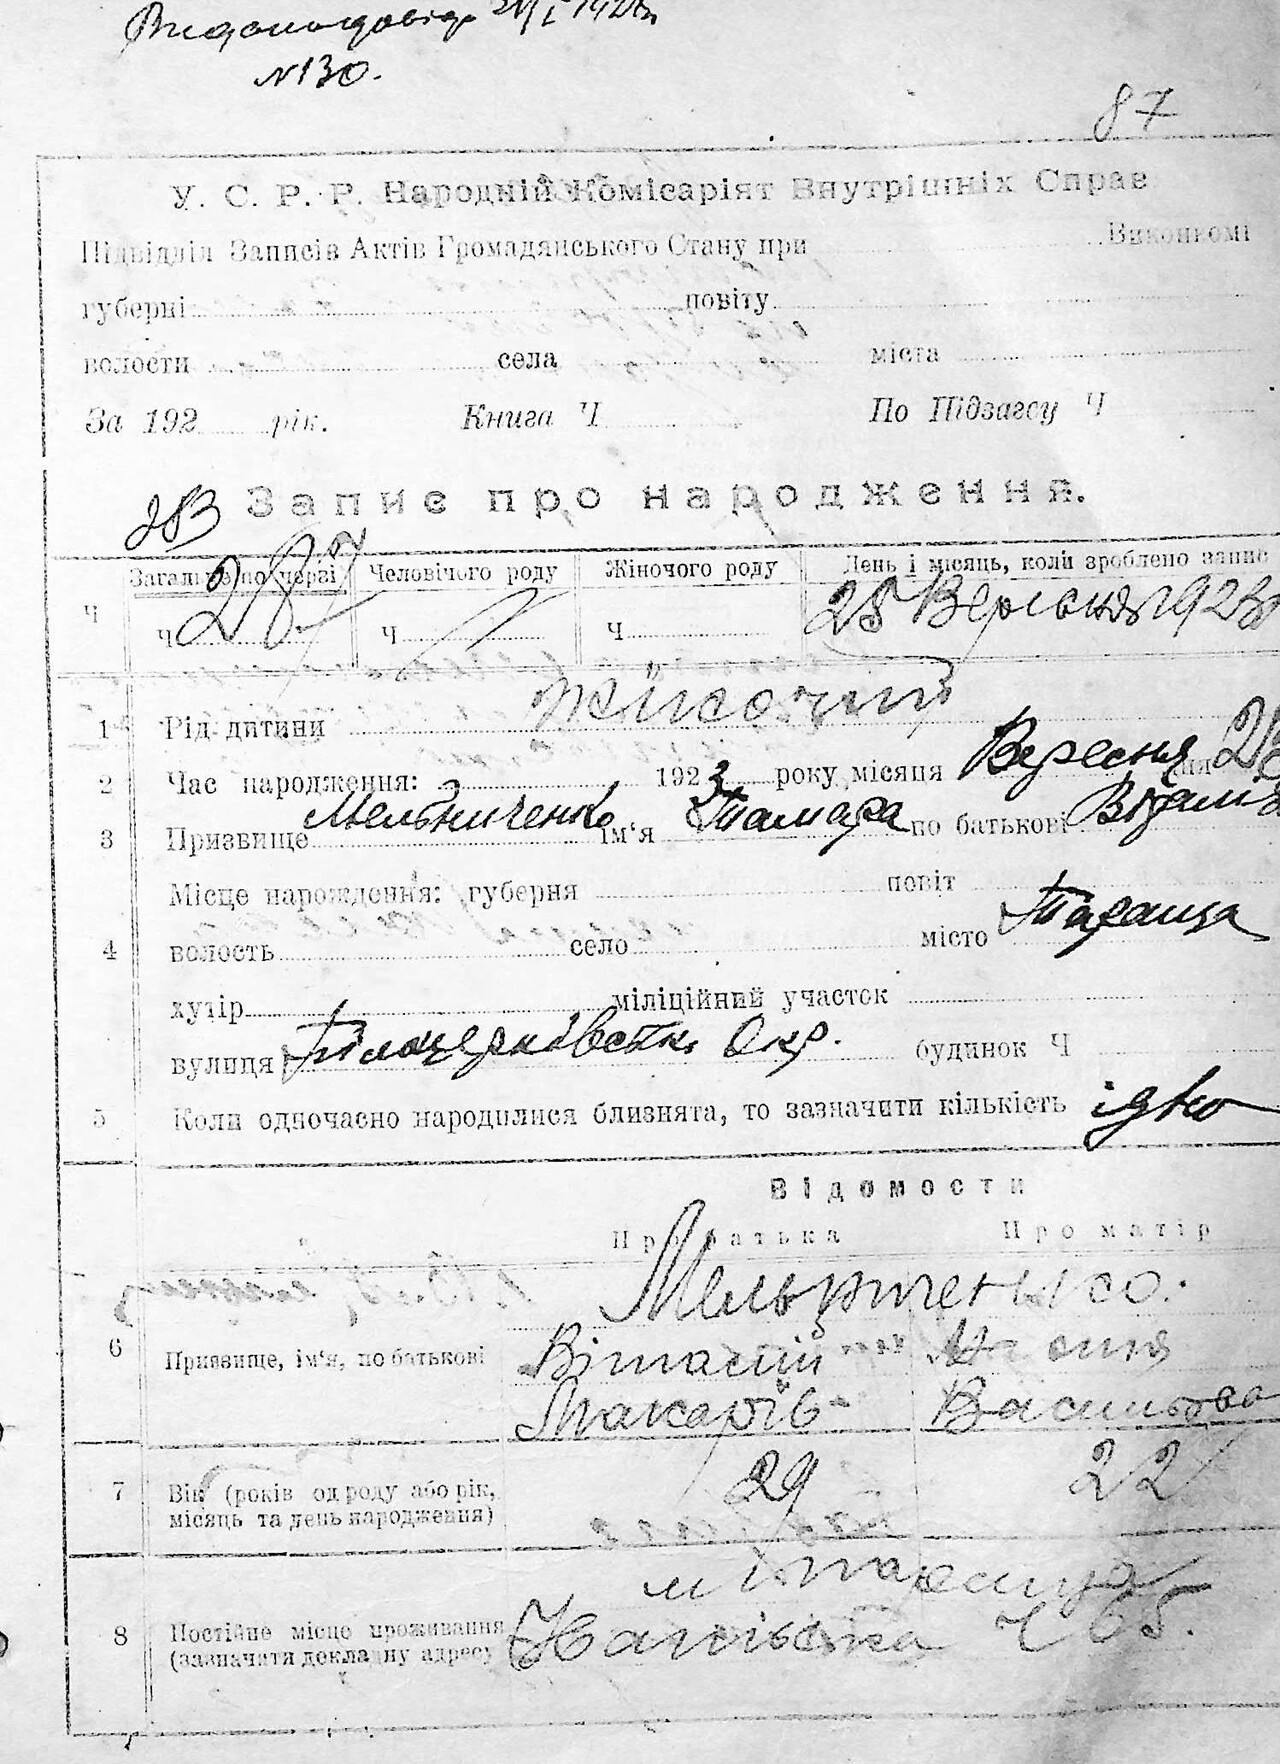 №130.
87
У. С. Р. Р. Народній Комісаріят Внутрішніх Справ
Підвідділ Записів Актів Громадянського Стану при Виконкомі
губерні повіту
волости села міста
За 192 рік. Книга Ч По Підзагсу Ч
283
Запис про народження.
Загальне по черзі Человічого роду Жіночого роду День і місяць, коли зроблено запис
Ч Ч 287 Ч Ч 28 Вересня 1923
1 Рід дитини Жіночий
2 Час народження: 1923 року місяця Вересня дня
3 Призвище Мельниченко ім‘я Тамара по батькові
Місце народження: губерня повіт
4 волость село місто Тараща
хутір міліційний участок
вулиця Білоцерківськ. Окр. будинок Ч
5 Коли одночасно народилися близнята, то зазначити кількість
Відомости
Про батька Про матір
Мельниченко.
6 Призвище, ім‘я, по батькові Віталій
Макарів Васильова
7 Вік (років од роду або рік, 29 22
місяць та день народження)
м Тараща
8 Постійне місце проживання Ч 65.
(зазначити докладну адресу